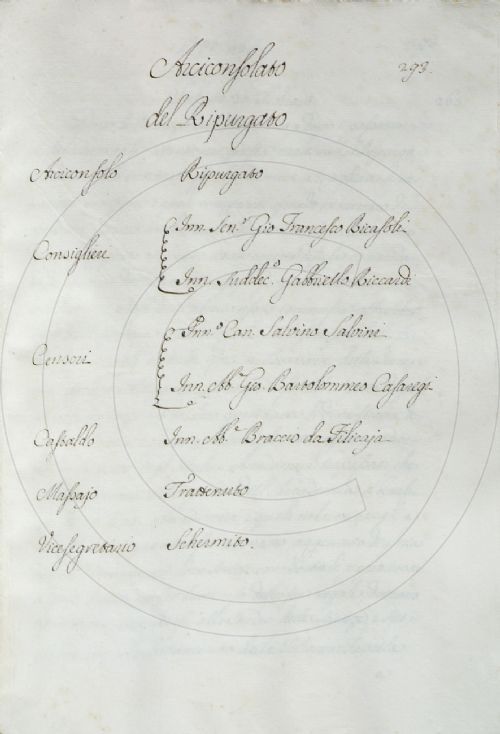 Arciconsolato 293.
del Ripurgato
Arciconsolo Ripurgato
Consiglieri
Inn. Sen.e Gio Francesco Ricasoli
Inn. Suddec.o Gabbriello Riccardi
Censori
Inn.o Can. Salvino Salvini
Inn. Abb.e Gio. Bartolommeo Casaregi
Castaldo Inn. Abb.e Braccio da Filicaja
Massajo Trattenuto
Vicesegretario Schermito.